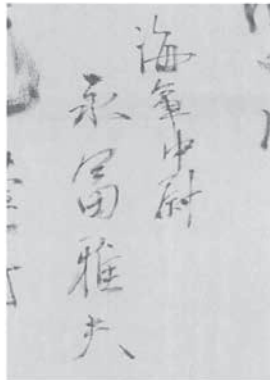 海軍中尉
永冨雅夫